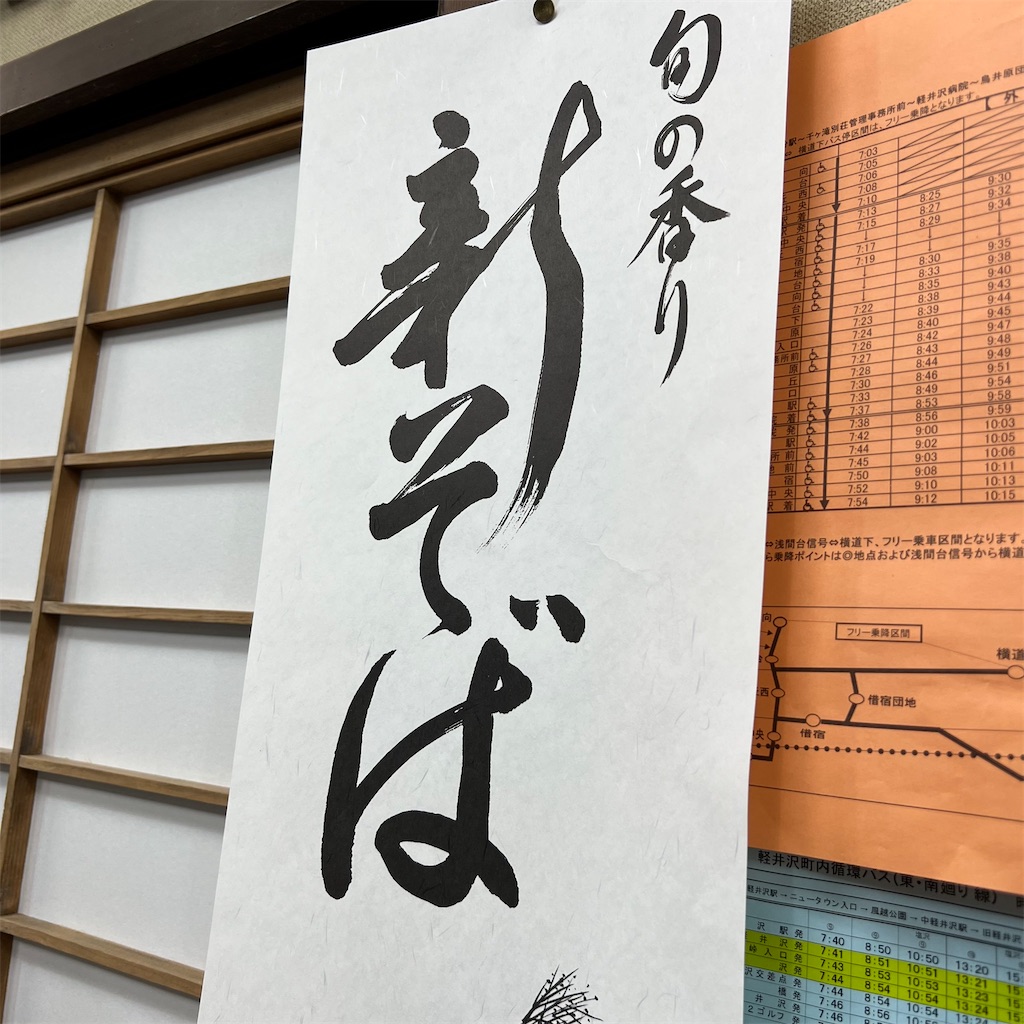 旬の香り
新そば
駅～千ヶ滝別荘管理事務所前～軽井沢病院～鳥井原団
横道下バス停区間は、フリー乗降となります。
【 外
7:03
7:05
7:06
7:08
7:10 8:25 9:30
7:13 8:27 9:32
7:15 8:29 9:34
7:17
7:19 8:30 9:35
8:33 9:38
8:35 9:40
8:38 9:43
7:22 8:39 9:44
7:23 8:40 9:45
7:24 8:42 9:47
7:26 8:43 9:48
7:27 8:44 9:49
7:28 8:46 9:51
7:30 8:49 9:54
7:33 8:53 9:58
7:37 8:56 9:59
7:38 9:00 10:03
7:42 9:02 10:05
7:44 9:03 10:06
7:45 9:08 10:11
7:50 9:10 10:13
7:52 9:12 10:15
7:54
⇔浅間台信号⇔横道下、フリー乗車区間となります。
ら乗降ポイントは◎地点および浅間台信号から横道
フリー乗降区間
横道
借宿団地
借宿
軽井沢町内循環バス(東・南廻り線)
軽井沢駅→ニュータウン入口→風越公園→中軽井沢駅→旧軽井沢
沢 駅 発 7:40 8:50 10:50 13:20 15
井 沢 発 7:41 8:51 10:51 13:21 15
峠 入 口 発 7:43 8:53 10:53 13:23 15
沢 発 7:44 8:54 10:54 13:24 15
沢交差点発 7:44 8:54 10:54 13:24
橋 発 7:46 8:56
井 沢 発 7:46
2 ゴルフ 発